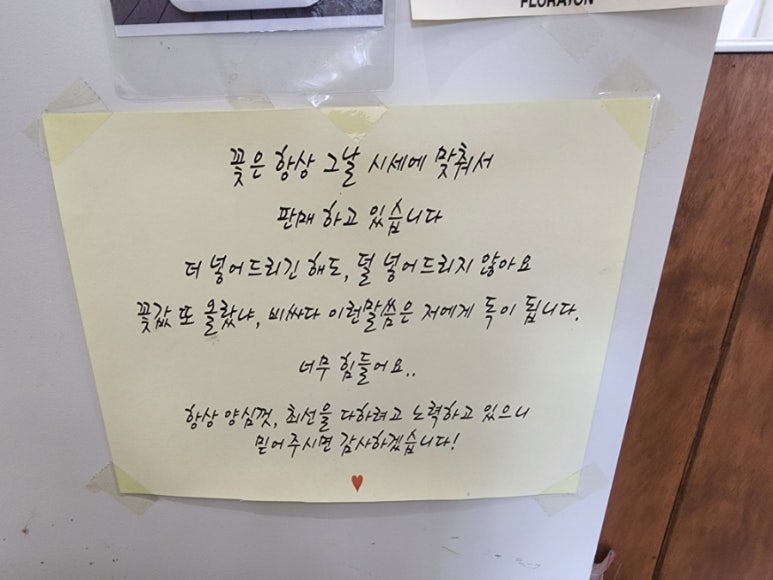 FLORATON
꽃은 항상 그날 시세에 맞춰서
판매 하고 있습니다
더 넣어드리긴 해도, 덜 넣어드리지 않아요
꽃값 또 올랐냐, 비싸다 이런말씀은 저에게 독이 됩니다.
너무 힘들어요..
항상 양심껏, 최선을 다하려고 노력하고 있으니
믿어주시면 감사하겠습니다!